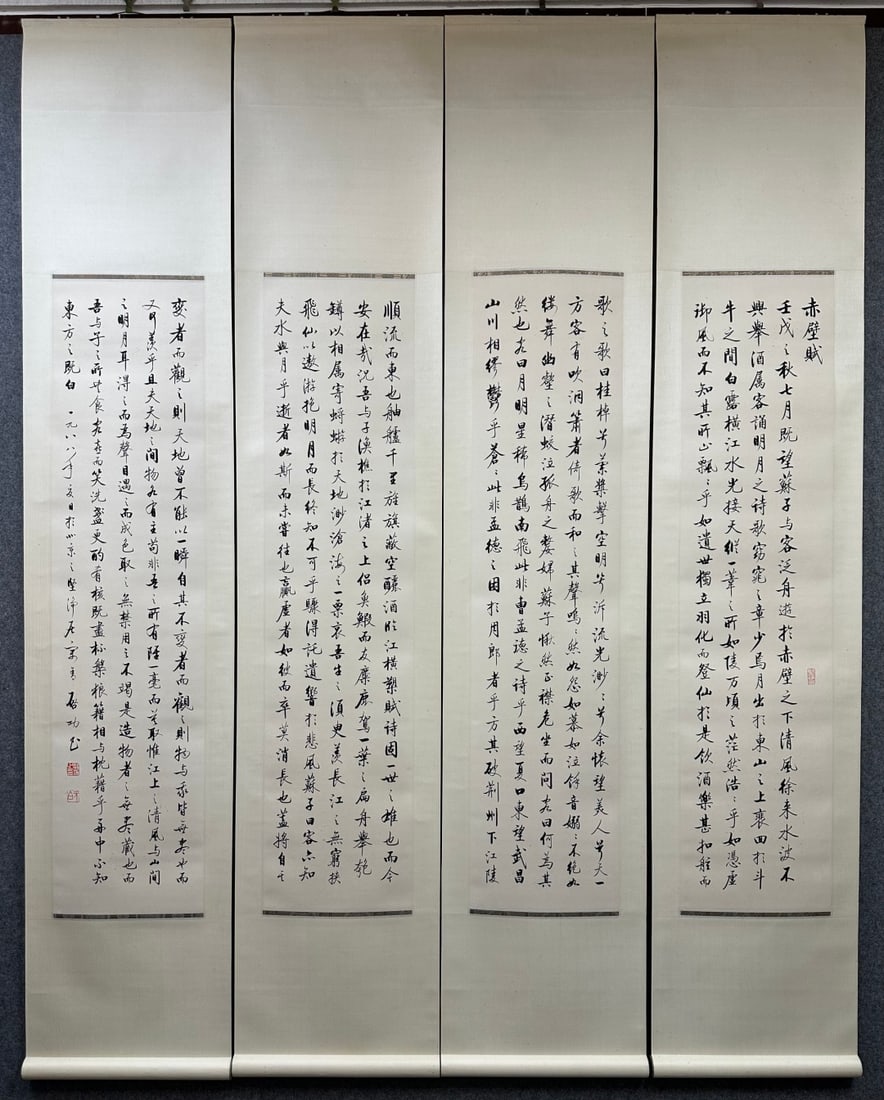 赤壁賦
壬戌之秋七月既望蘇子与客泛舟遊於赤壁之下清風徐来水波不
興舉酒属客誦明月之诗歌窈窕之章少焉月出於東山之上裵回於斗
牛之間白露横江水光接天縱一葦之所如陵万頃之茫然浩〻乎如憑虚
御風而不知其所止飄〻乎如遺世獨立羽化而登仙於是飲酒樂甚扣舷而
歌之歌曰桂棹兮蘭槳擊空明兮泝流光渺〻兮余懷望美人兮天一
方客有吹洞簫者倚歌而和之其聲嗚〻然如怨如慕如泣餘音嫋〻不絶如
縷舞幽壑之潛蛟泣孤舟之嫠婦蘇子愀然正襟危坐而問客曰何為其
然也客曰月明星稀烏鵲南飛此非曹孟德之诗乎西望夏口東望武昌
山川相繆鬱乎蒼〻此非孟德之困於周郎者乎方其破荆州下江陵
順流而東也舳艫千里旌旗蔽空釃酒臨江横槊賦诗固一世之雄也而今
安在哉况吾与子漁樵於江渚之上侣魚鰕而友麋鹿駕一葉之扁舟舉匏
罇以相属寄蜉蝣於天地渺滄海之一粟哀吾生之須臾羡長江之無窮挟
飛仙以遨游抱明月而長終知不可乎驟得託遺響於悲風蘇子曰客亦知
夫水與月乎逝者如斯而未嘗往也赢虚者如彼而卒莫消長也蓋將自其
變者而觀之則天地曾不能以一瞬自其不變者而觀之則物与我皆無盡也而
又何羡乎且夫天地之間物各有主苟非吾之所有雖一毫而莫取惟江上之清風与山間
之明月耳得之而為聲目遇之而成色取之無禁用之不竭是造物者之無盡藏也而
吾与子之所共食客喜而笑洗盞更酌肴核既盡杯槃狼籍相与枕藉乎舟中不知
東方之既白 一九八八年夏日於北京之堅淨居 啓功